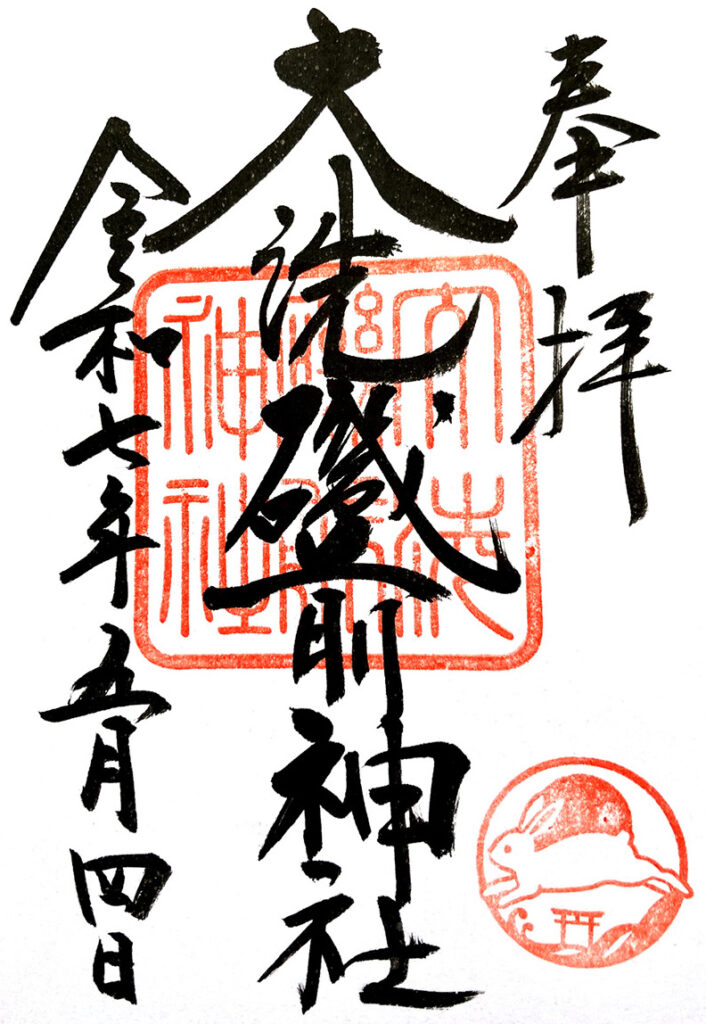 奉拝
大洗磯前神社
令和七年五月四日
大洗
磯前
神社